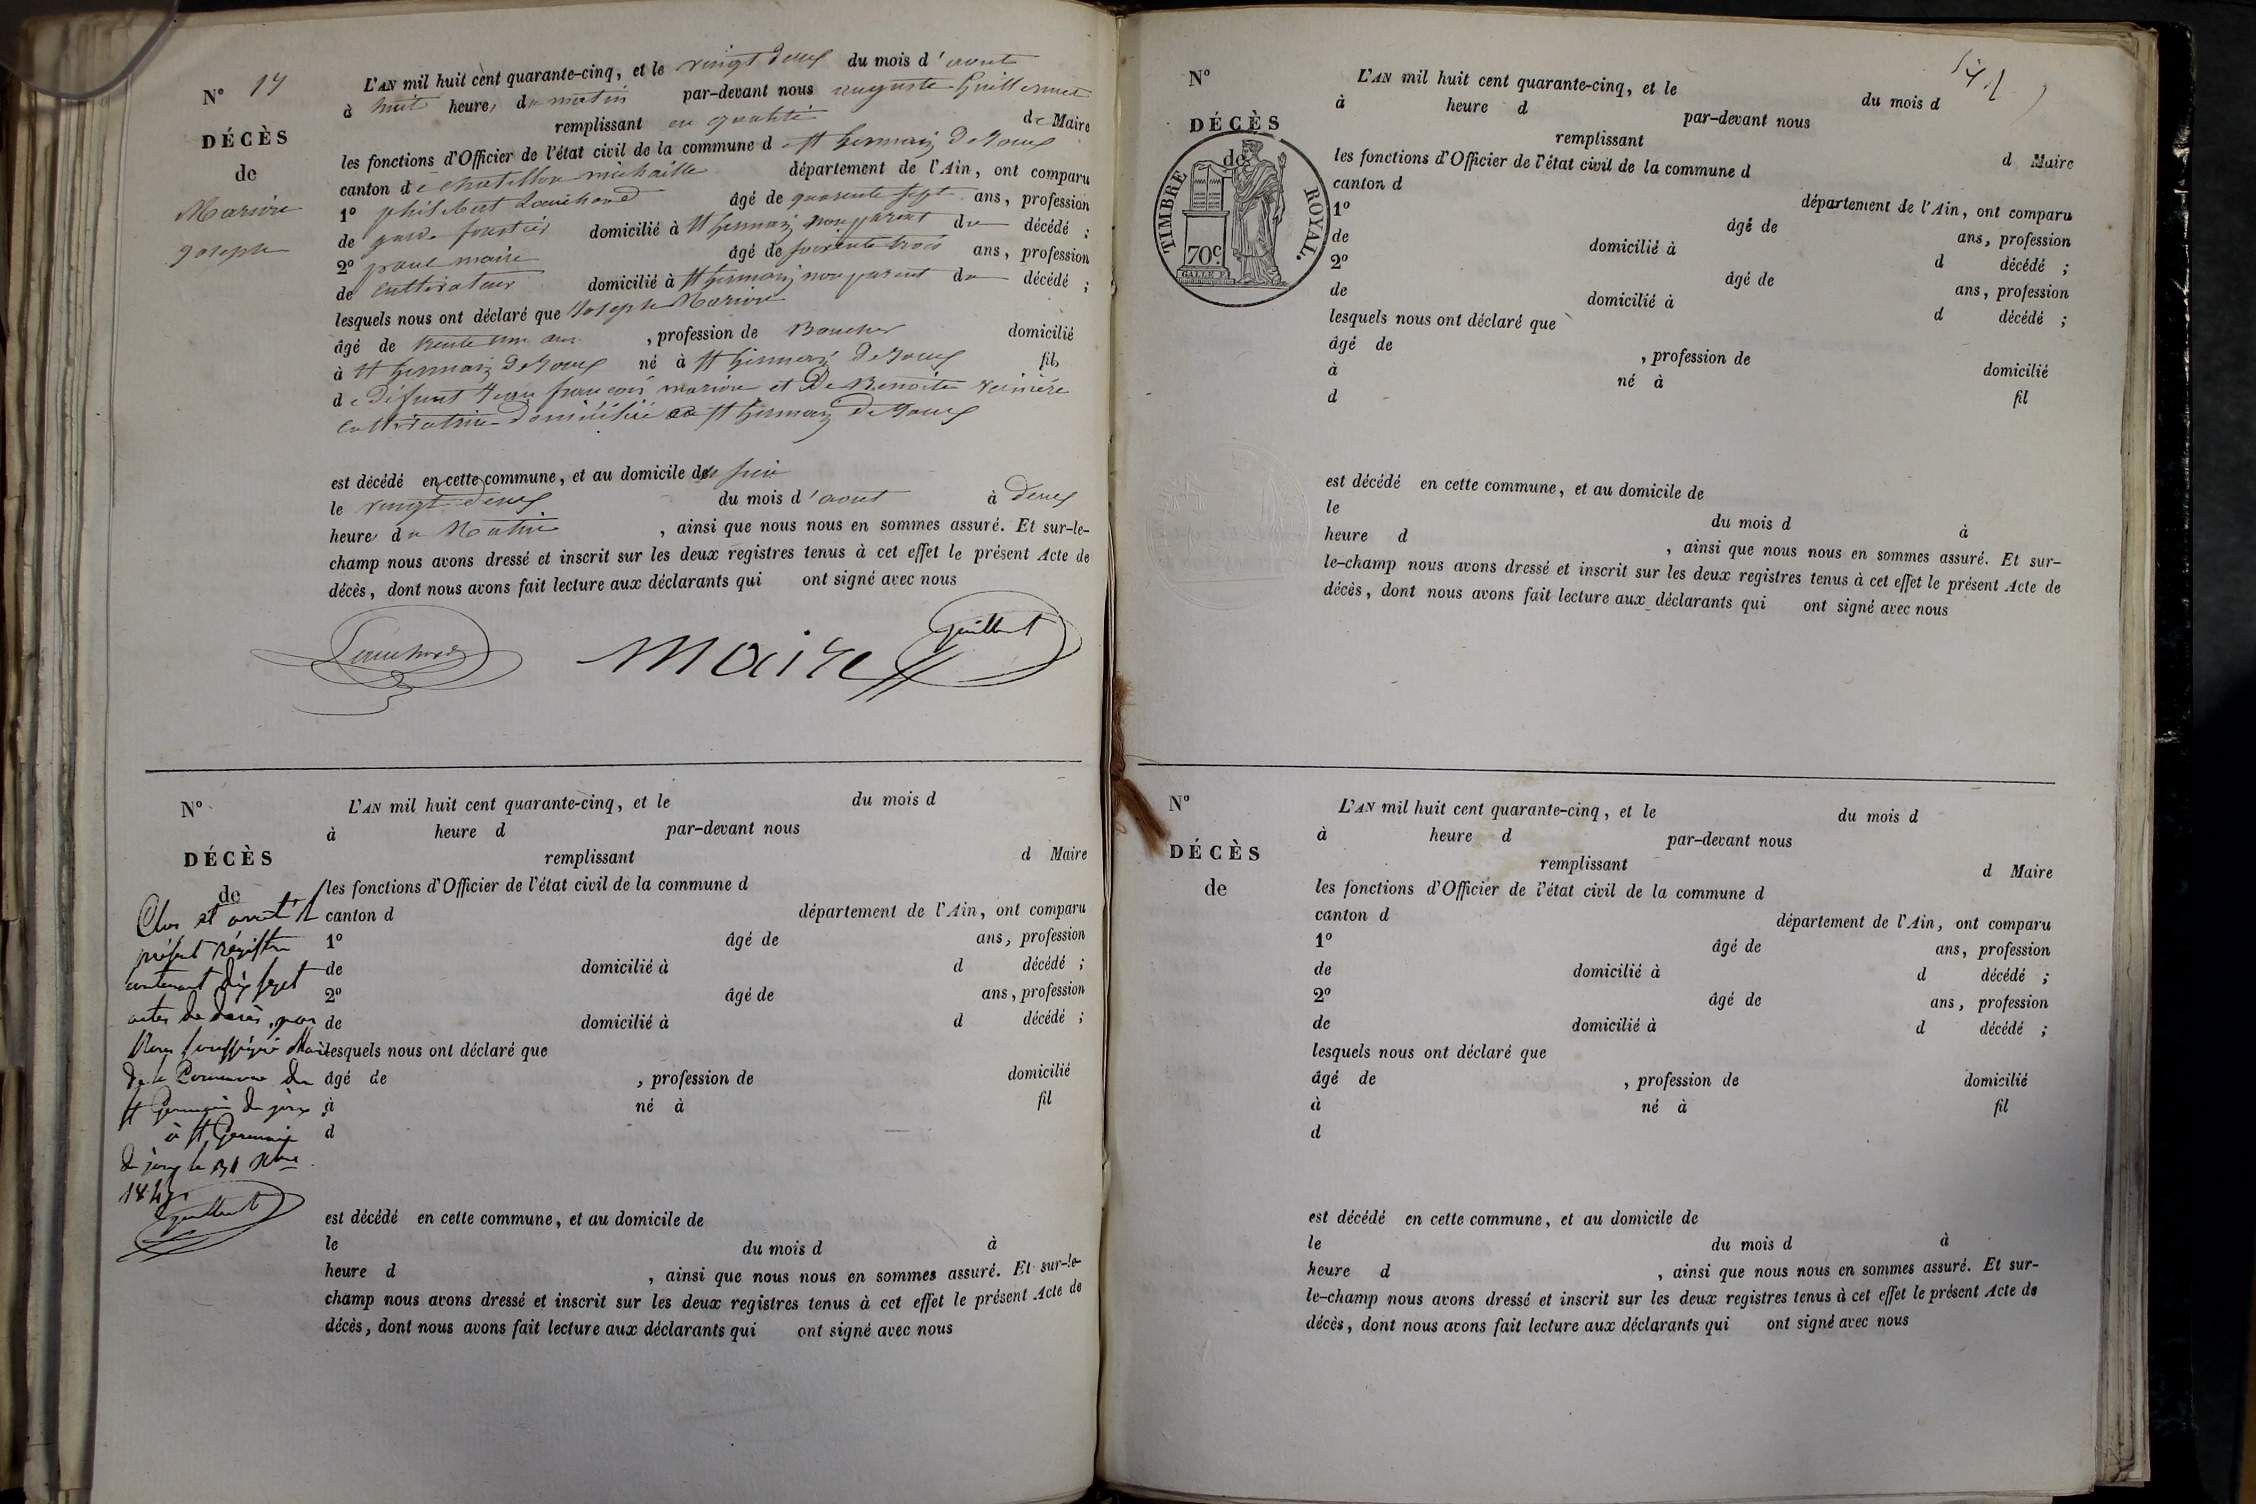 N° 17
DÉCÈS
de
Marion
joseph
L'AN mil huit cent quarante-cinq, et le vingt deux du mois d'aout
à huit heures du matin par-devant nous auguste Guillermet
remplissant en qualité de Maire
les fonctions d'Officier de l'état civil de la commune d St germain De Joux
canton de chatillon michaille département de l'Ain, ont comparu
1° philibert âgé de quarante sept ans, profession
de garde forestier domicilié à St germain non parent du décédé ;
2° paul maire âgé de soixante trois ans, profession
de cultivateur domicilié à St germain non parent du décédé ;
lesquels nous ont déclaré que Joseph Marion
âgé de trente un ans , profession de Boucher domicilié
à St germain De Joux né à St germain De Joux fils
de défunt Jean françois marion et De Benoite
cultivatrice domiciliée a St germain De Joux
est décédé en cette commune, et au domicile de sien
le vingt deux du mois d'aout à deux
heures du Matin , ainsi que nous nous en sommes assuré. Et sur-le-
champ nous avons dressé et inscrit sur les deux registres tenus à cet effet le présent Acte de
décès, dont nous avons fait lecture aux déclarants qui ont signé avec nous
Maire
N°
DÉCÈS
de
Clos et arrêté le
présent régistre
contenant dix sept
actes de décès, par
Nous soussigné Maire
de la Commune de
St Germain de joux
à St Germain
de joux le 31 Xbre
1845
L'AN mil huit cent quarante-cinq, et le du mois d
à heure d par-devant nous
remplissant d Maire
les fonctions d'Officier de l'état civil de la commune d
canton d département de l'Ain, ont comparu
1° âgé de ans, profession
de domicilié à d décédé ;
2° âgé de ans, profession
de domicilié à d décédé ;
lesquels nous ont déclaré que
âgé de , profession de domicilié
à né à fil
d
est décédé en cette commune, et au domicile de
le du mois d à
heure d , ainsi que nous nous en sommes assuré. Et sur-le-
champ nous avons dressé et inscrit sur les deux registres tenus à cet effet le présent Acte de
décès, dont nous avons fait lecture aux déclarants qui ont signé avec nous
N°
DÉCÈS
de
TIMBRE ROYAL.
70c.
L'AN mil huit cent quarante-cinq, et le du mois d
à heure d par-devant nous
remplissant d Maire
les fonctions d'Officier de l'état civil de la commune d
canton d département de l'Ain, ont comparu
1° âgé de ans, profession
de domicilié à d décédé ;
2° âgé de ans, profession
de domicilié à d décédé ;
lesquels nous ont déclaré que
âgé de , profession de domicilié
à né à fil
d
est décédé en cette commune, et au domicile de
le du mois d à
heure d , ainsi que nous nous en sommes assuré. Et sur-
le-champ nous avons dressé et inscrit sur les deux registres tenus à cet effet le présent Acte de
décès, dont nous avons fait lecture aux déclarants qui ont signé avec nous
N°
DÉCÈS
de
L'AN mil huit cent quarante-cinq, et le du mois d
à heure d par-devant nous
remplissant d Maire
les fonctions d'Officier de l'état civil de la commune d
canton d département de l'Ain, ont comparu
1° âgé de ans, profession
de domicilié à d décédé ;
2° âgé de ans, profession
de domicilié à d décédé ;
lesquels nous ont déclaré que
âgé de , profession de domicilié
à né à fil
d
est décédé en cette commune, et au domicile de
le du mois d à
heure d , ainsi que nous nous en sommes assuré. Et sur-
le-champ nous avons dressé et inscrit sur les deux registres tenus à cet effet le présent Acte de
décès, dont nous avons fait lecture aux déclarants qui ont signé avec nous